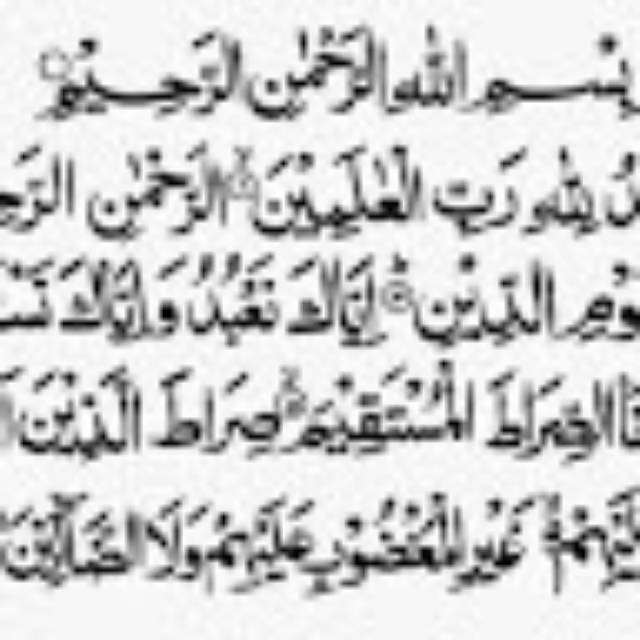 بِسْمِ اللهِ الرَّحْمٰنِ الرَّحِيْمِ
لِلّٰهِ رَبِّ الْعٰلَمِيْنَ الرَّحْمٰنِ
الدِّيْنِ اِيَّاكَ نَعْبُدُ وَاِيَّاكَ
الصِّرَاطَ الْمُسْتَقِيْمَ صِرَاطَ الَّذِيْنَ
غَيْرِ الْمَغْضُوْبِ عَلَيْهِمْ وَلَا الضَّآلِّيْنَ